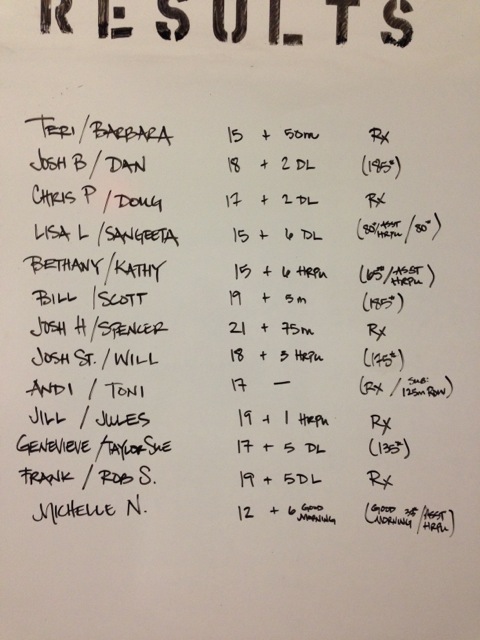 RESULTS
TERI / BARBARA 15 + 50m Rx
JOSH B / DAN 18 + 2 DL (185#)
CHRIS P / DOUG 17 + 2 DL Rx
LISA L / SANGEETA 15 + 6 DL (80#/ASST HRPU / 80#)
BETHANY / KATHY 15 + 6 HRPU (65#/ASST HRPU)
BILL / SCOTT 19 + 5m (185#)
JOSH H / SPENCER 21 + 75m Rx
JOSH ST. / WILL 18 + 3 HRPU (175#)
ANDI / TONI 17 — (Rx / SUB: 125m ROW)
JILL / JULES 19 + 1 HRPU Rx
GENEVIEVE / TAYLOR SUE 17 + 5 DL (135#)
FRANK / ROB S. 19 + 5 DL Rx
MICHELLE N. 12 + 6 GOOD MORNING (GOOD MORNING 35# / ASST HRPU)